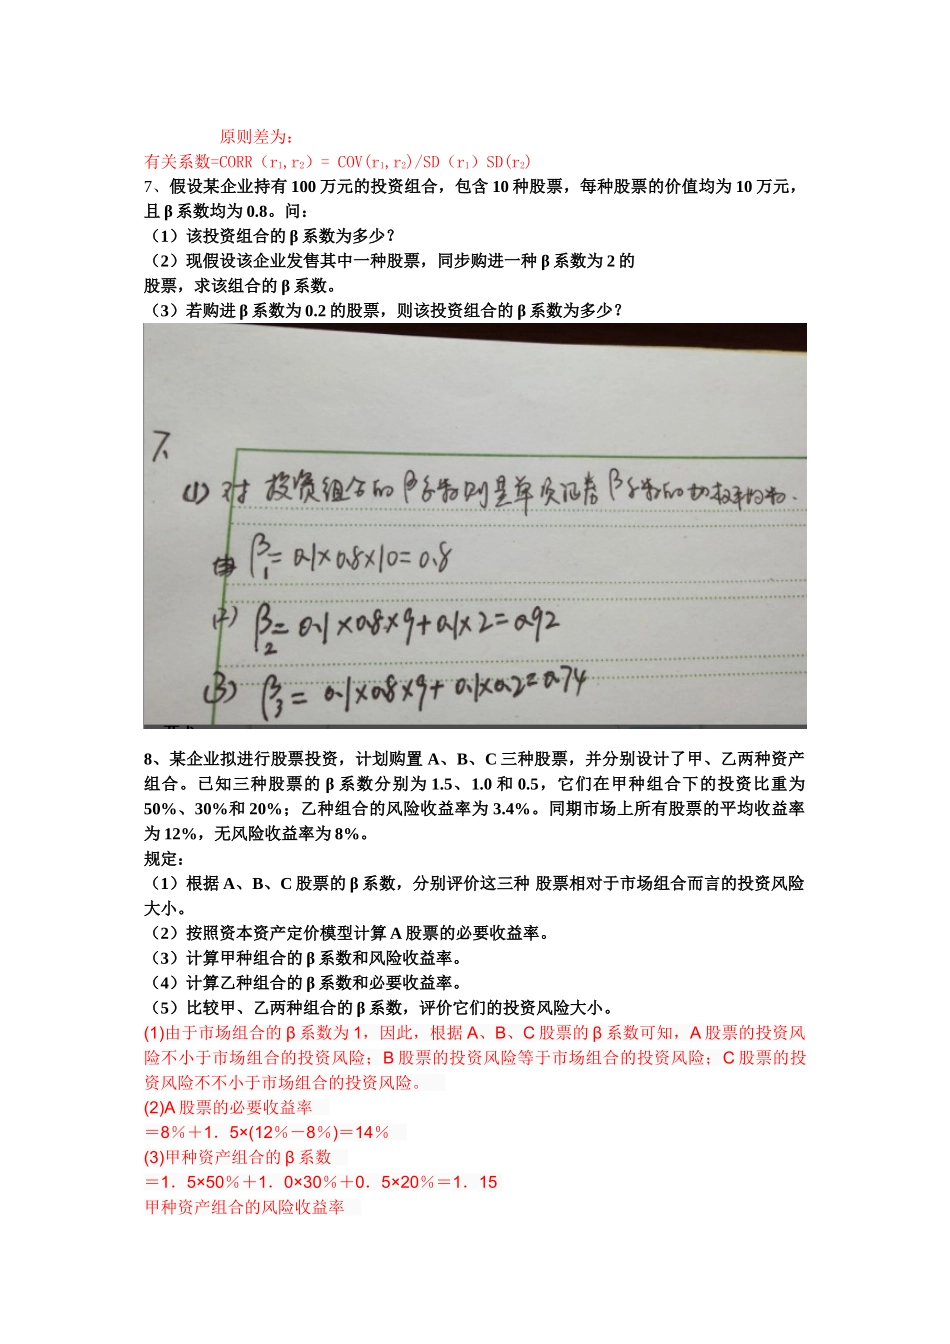 原则差为：
有关系数=CORR（r₁,r₂）= COV(r₁,r₂)/SD（r₁）SD(r₂)
7、假设某企业持有 100 万元的投资组合，包含 10 种股票，每种股票的价值均为 10 万元，
且 β 系数均为 0.8。问：
（1）该投资组合的 β 系数为多少？
（2）现假设该企业发售其中一种股票，同步购进一种 β 系数为 2 的
股票，求该组合的 β 系数。
（3）若购进 β 系数为 0.2 的股票，则该投资组合的 β 系数为多少？
7、
(1) 对投资组合的β系数则是单项证券β系数的加权平均数.
β₁=0.1×0.8×10=0.8
(2) β₂=0.1×0.8×9+0.1×2=0.92
(3) β₃=0.1×0.8×9+0.1×0.2=0.74
8、某企业拟进行股票投资，计划购置 A、B、C 三种股票，并分别设计了甲、乙两种资产
组合。已知三种股票的 β 系数分别为 1.5、1.0 和 0.5，它们在甲种组合下的投资比重为
50%、30%和 20%；乙种组合的风险收益率为 3.4%。同期市场上所有股票的平均收益率
为 12%，无风险收益率为 8%。
规定：
（1）根据 A、B、C 股票的 β 系数，分别评价这三种 股票相对于市场组合而言的投资风险
大小。
（2）按照资本资产定价模型计算 A 股票的必要收益率。
（3）计算甲种组合的 β 系数和风险收益率。
（4）计算乙种组合的 β 系数和必要收益率。
（5）比较甲、乙两种组合的 β 系数，评价它们的投资风险大小。
(1)由于市场组合的 β 系数为 1，因此，根据 A、B、C 股票的 β 系数可知，A 股票的投资风
险不小于市场组合的投资风险；B 股票的投资风险等于市场组合的投资风险；C 股票的投
资风险不不小于市场组合的投资风险。
(2)A 股票的必要收益率
＝8％＋1．5×(12％－8％)＝14％
(3)甲种资产组合的 β 系数
＝1．5×50％＋1．0×30％＋0．5×20％＝1．15
甲种资产组合的风险收益率